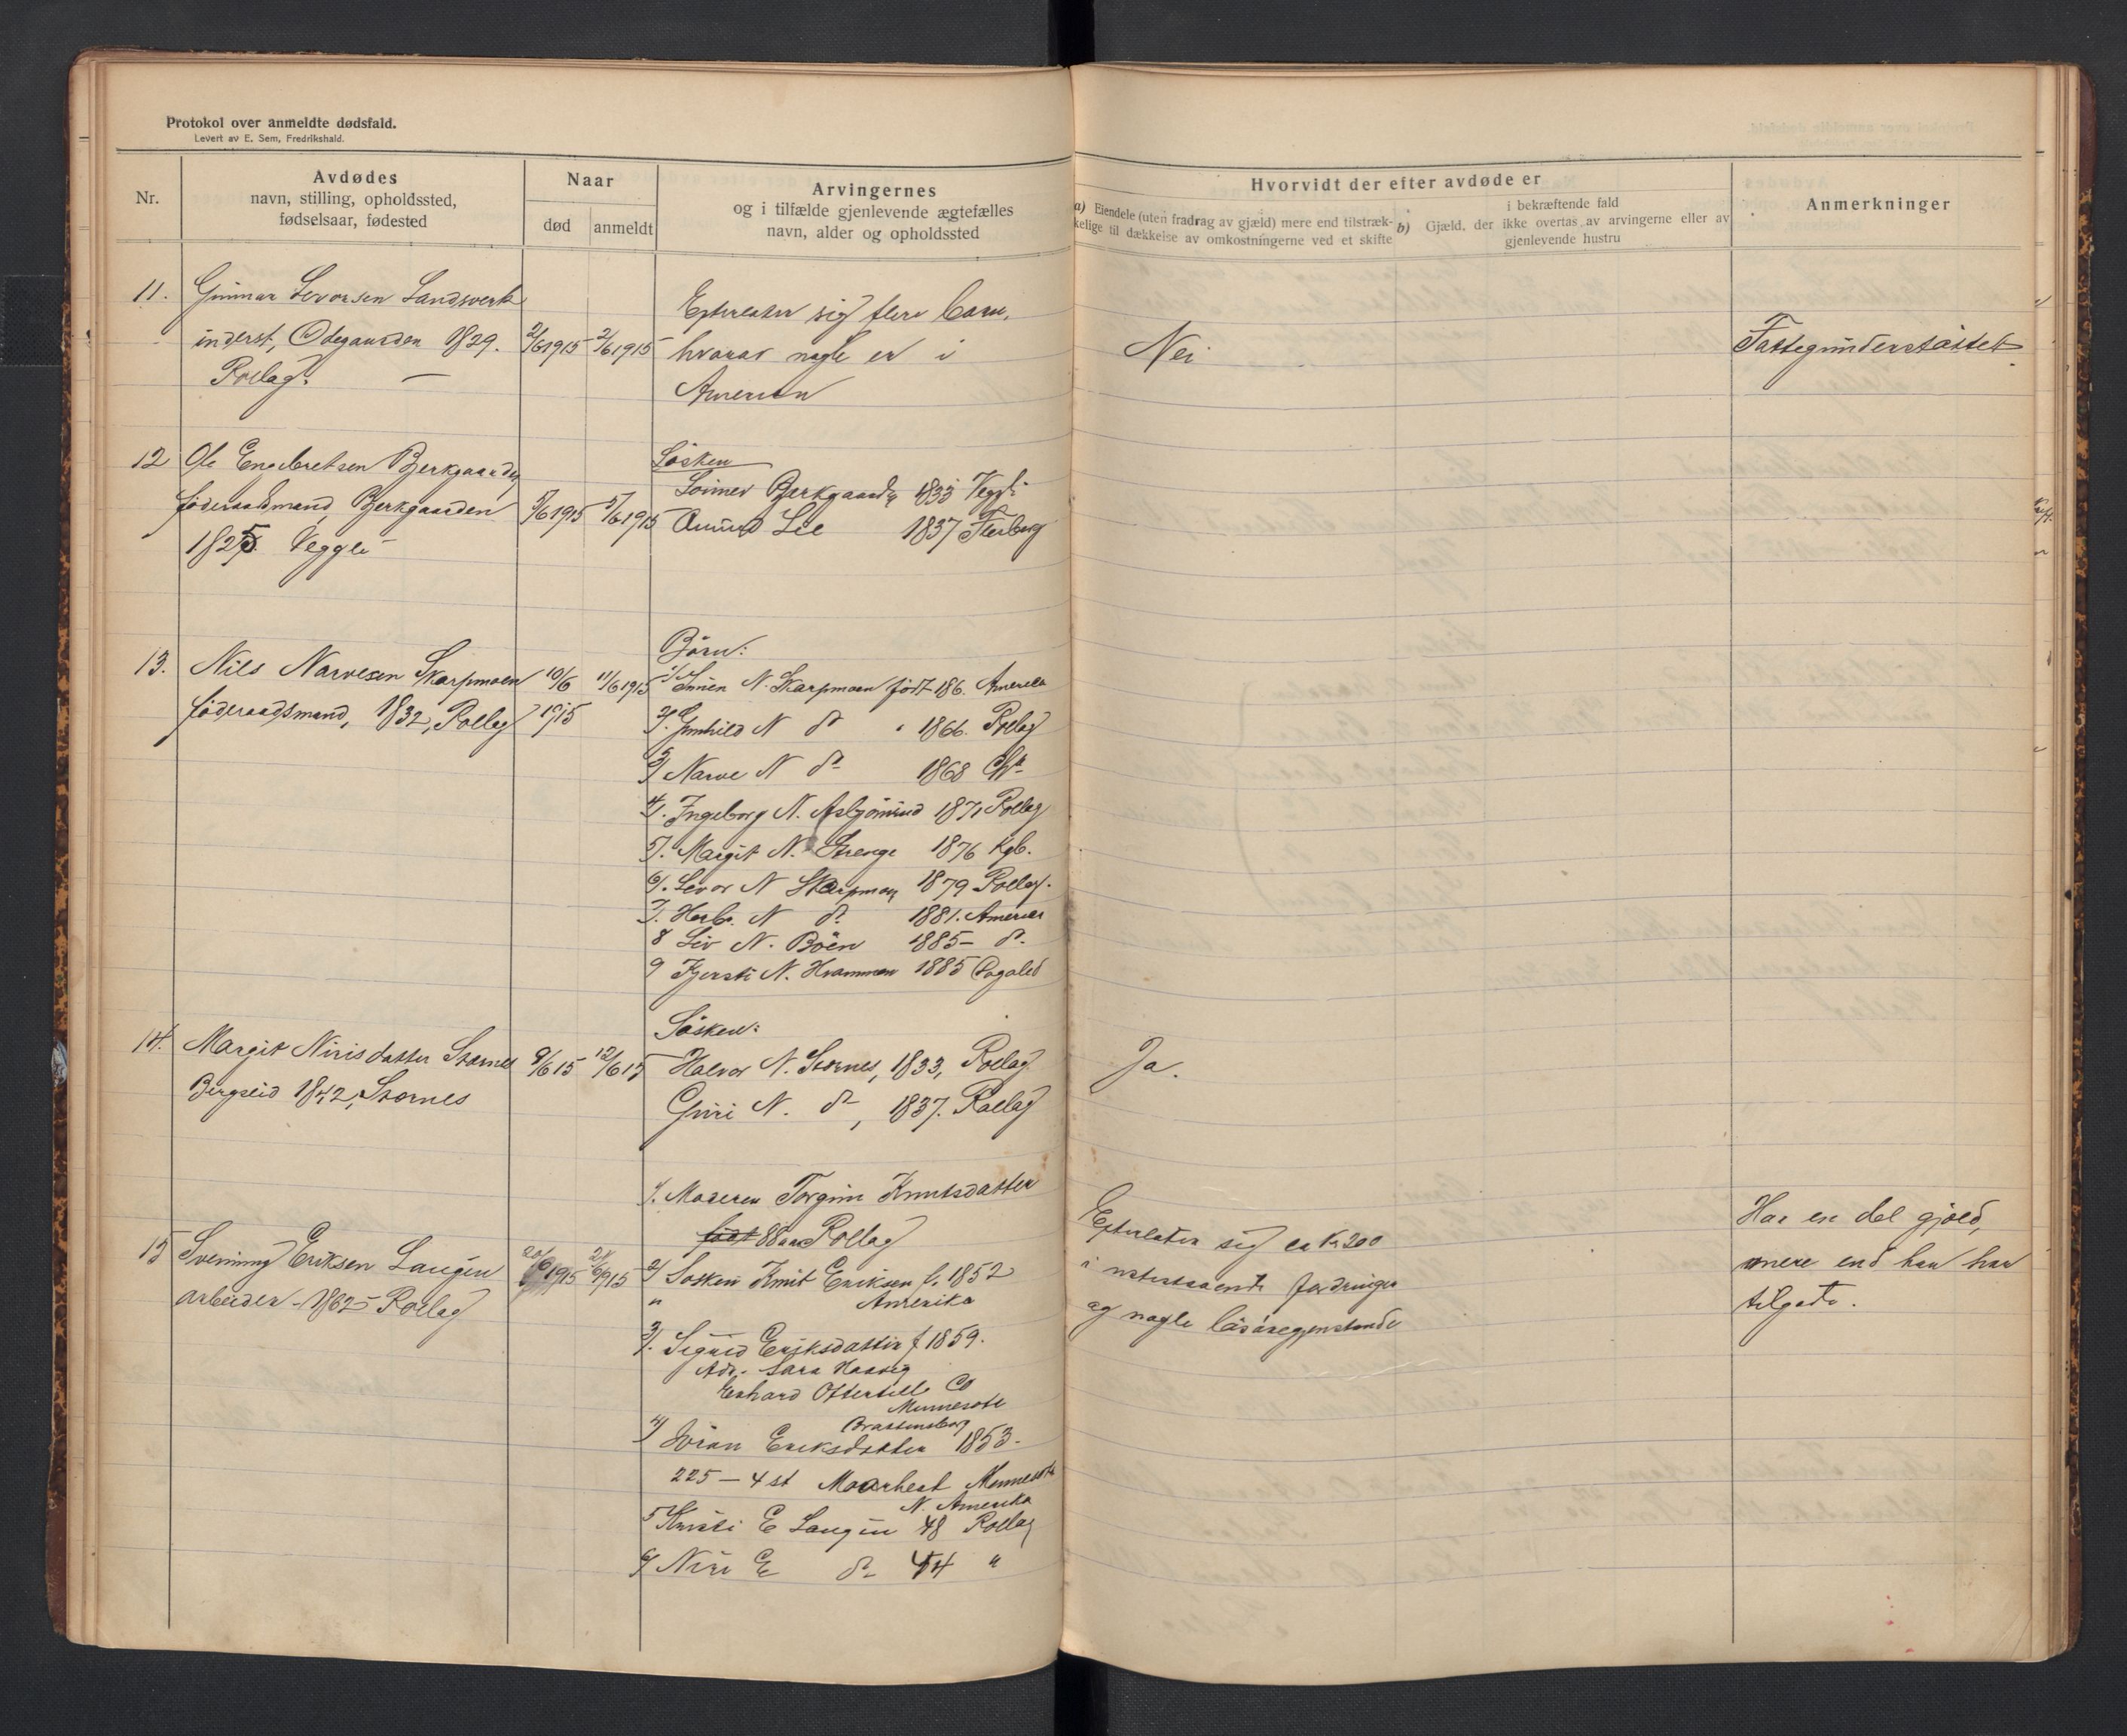 Protokol over anmeldte dødsfald.
Levert av E. Sem, Fredrikshald.
Nr.
Avdødes
navn, stilling, opholdssted,
fødselsaar, fødested
Naar
død
anmeldt
Arvingernes
og i tilfælde gjenlevende ægtefælles
navn, alder og opholdssted
Hvorvidt der efter avdøde er
a) Eiendele (uten fradrag av gjæld) mere end tilstræk-
kelige til dækkelse av omkostningerne ved et skifte
i bekræftende fald
b) Gjæld, der ikke overtas av arvingerne eller av
gjenlevende hustru
Anmerkninger
11. Gunnar Levorsen Landsverk
inderst, Ødegaarden 1829.
Rollag. —
2/6 1915 2/6 1915
Efterlater sig flere barn,
hvorav nogle er i
Amerika
Nei
Fattigunderstøttet.
12 Ole Engebretsen Bjerkgaarden
føderaadmand, Bjerkgaarden
1825. Veggli
5/6 1915 5/6 1915
Søsken
Bjerkgaarden 1833 Veggli
Lie 1837 Flesberg
13. Nils Narvesen Skarpmoen
føderaadsmand, 1832, Rollag
10/6 1915
11/6 1915
Børn:
1/ N. Skarpmoen født 186. Amerika
2/. Gunhild N do " 1866. Rollag
3/ Narve N do 1868
4/. Ingeborg N. 1871 Rollag
5/. Margit N. 1876 Kgb.
6/. Levor N Skarpmoen 1879 Rollag.
7/. N do 1881. Amerika
8 Liv N. Bøen 1885 - do.
9 Kjersti N. Hvammen 1885
14. Margit Nirisdatter Stornes
1842, Stornes
9/6 15 12/6 15
Søsken:
Halvor N. Stornes, 1833, Rollag
Guri N. do, 1837. Rollag
Ja.
15 Svenung Eriksen Laugen
arbeider - 1862 - Rollag
20/6 1915 21/6 1915
1/. Moderen Torgun Knutsdatter
født 88 aar Rollag
2/ Søsken Knut Eriksen f. 1852
" Amerika
3/. Sigrid Eriksdatter f 1859.
Adr.
Co
Minnesota
4/ Eriksdatter 1853.
225 – 4 st Minnesota
N. Amerika
5 Kristi E Laugen 48 Rollag
6/ Niri E do 44 "
Efterlater sig ca kr 200
i utestaaende fordringer
og nogle løsøregjenstande
Har en del gjæld,
mere end han har
tilgode.